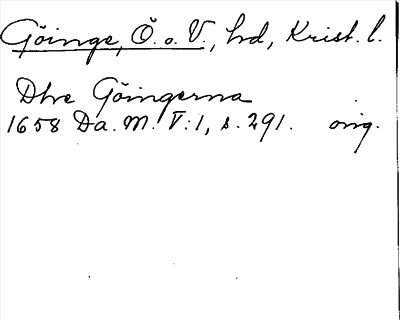 Göinge, Ö. o. V., hd, Krist. l.
Dhe Göingerna
1658 Da. M. V:1, s. 291. orig.